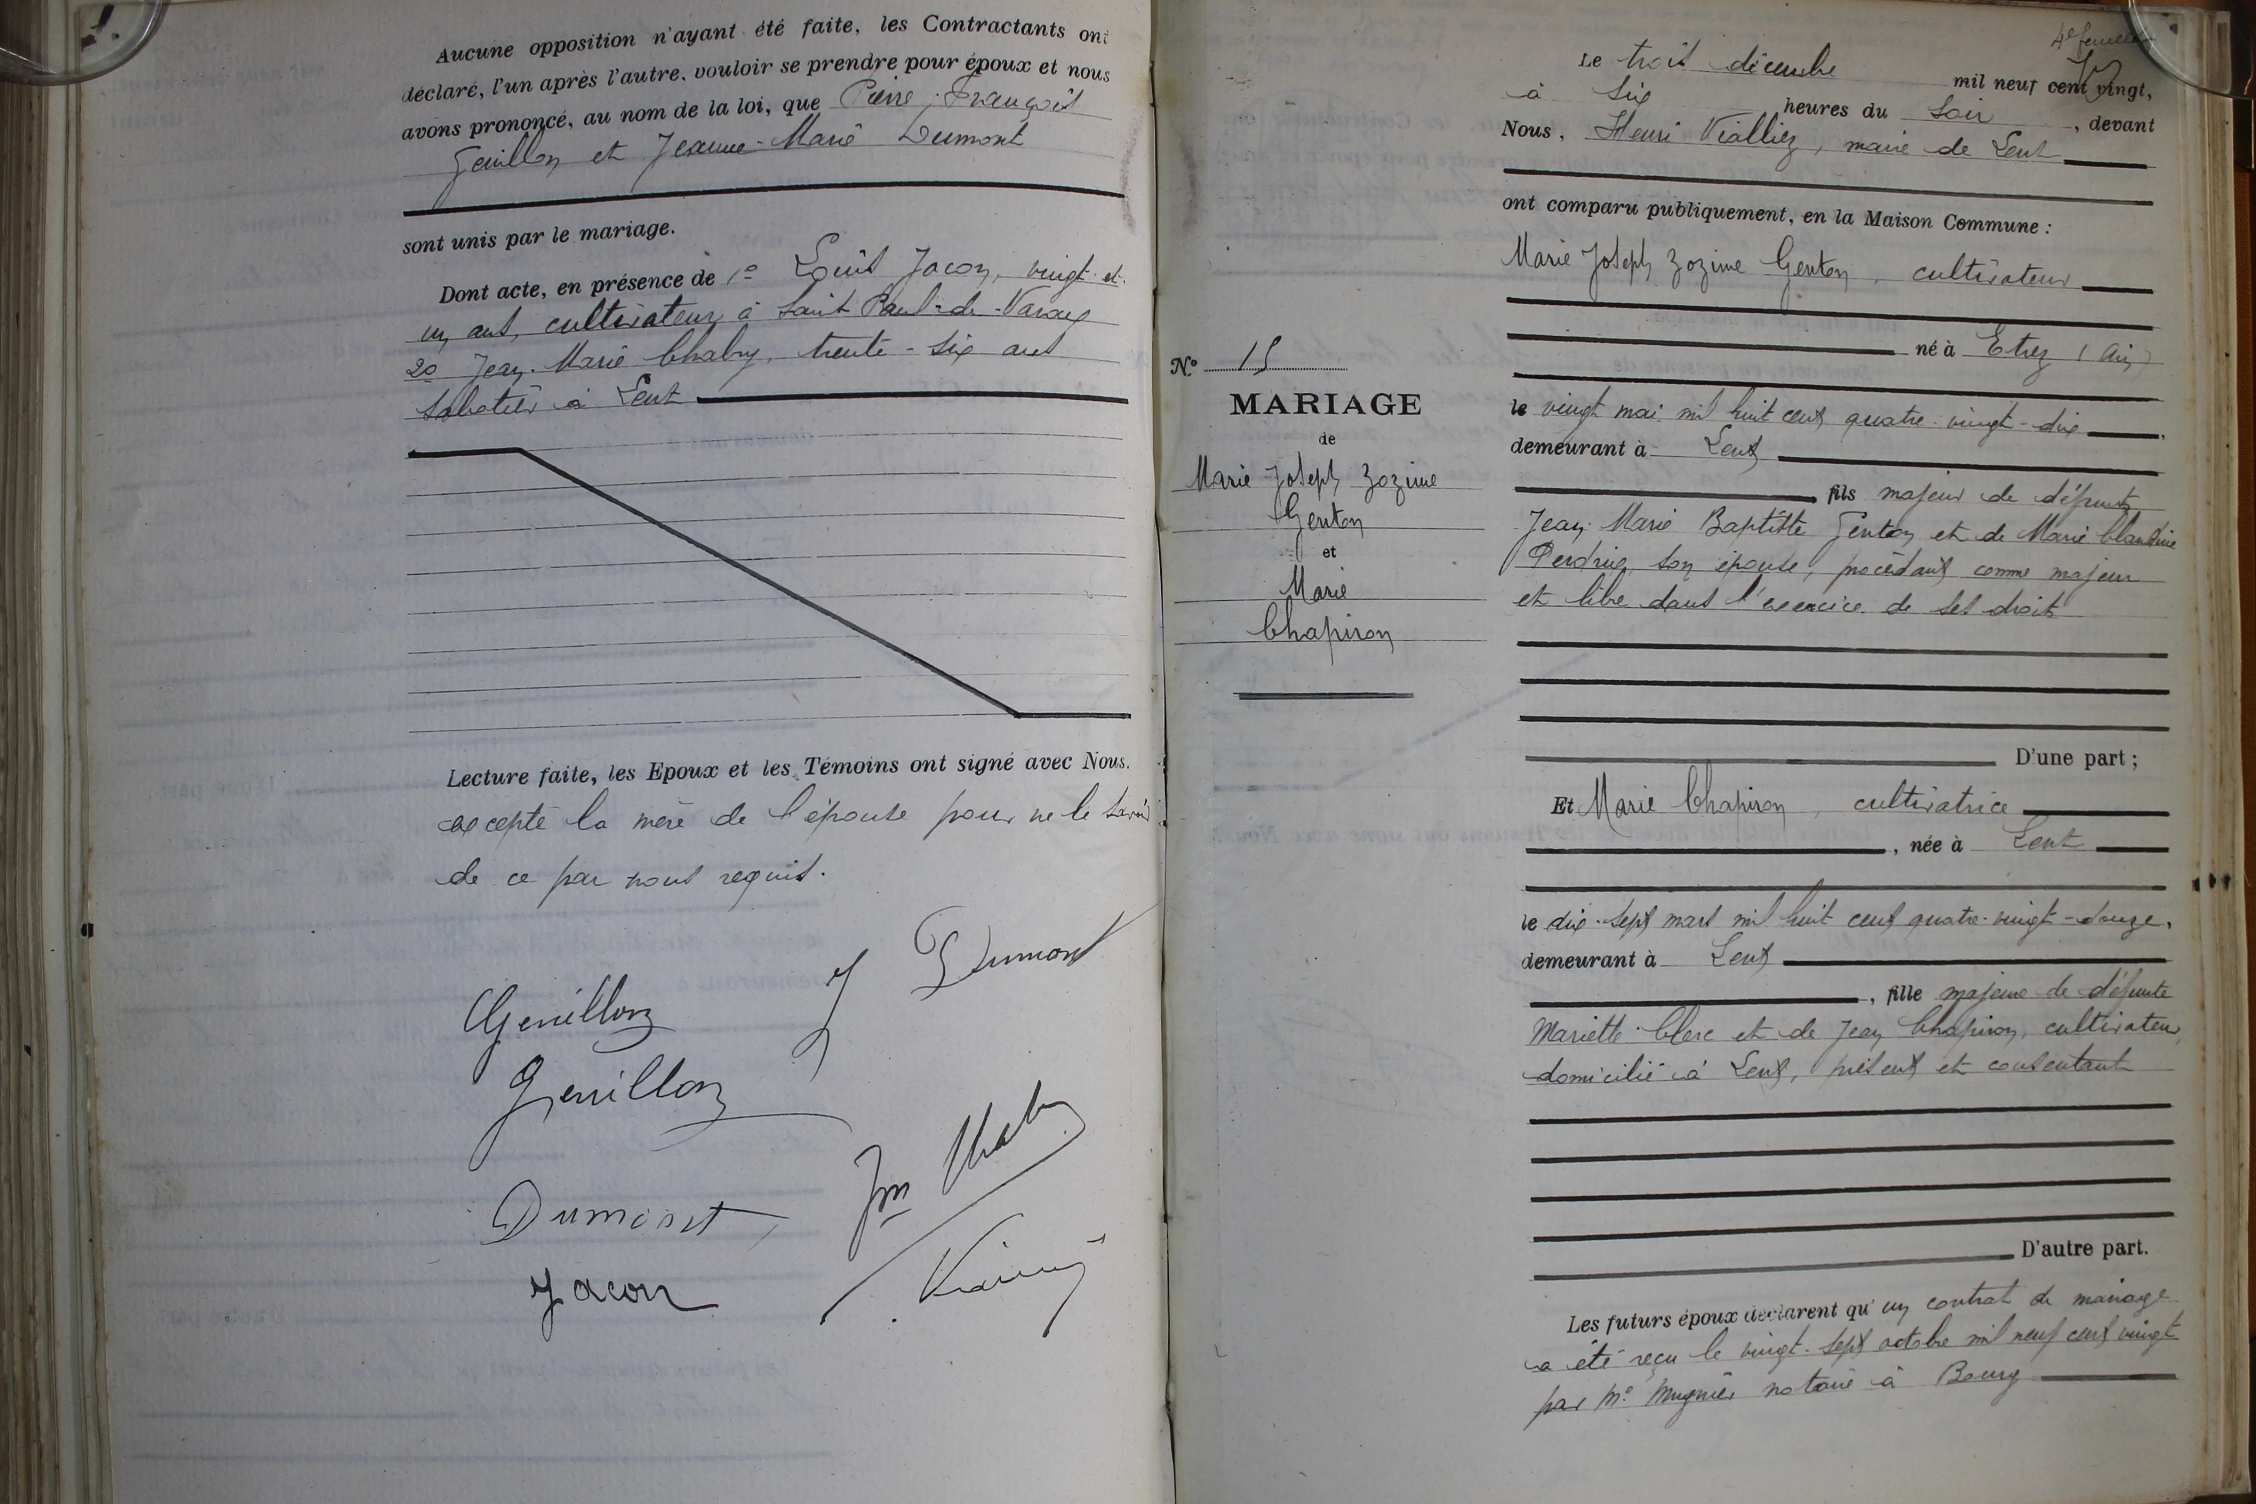 Aucune opposition n'ayant été faite, les Contractants ont
déclaré, l'un après l'autre, vouloir se prendre pour époux et nous
avons prononcé, au nom de la loi, que Pierre-François
Genillon et Jeanne-Marie Dumont
sont unis par le mariage.
Dont acte, en présence de 1º Louis Jacon, vingt-et-
un ans, cultivateur à Saint Paul-de-Varax
2º Jean-Marie Chabry, trente-six ans
sabotier à Lent
Lecture faite, les Epoux et les Témoins ont signé avec Nous.
excepté la mère de l'épouse pour ne le savoir
de ce par nous requis.
J Dumont
Genillon
Genillon
Jm
Dumont
Jacon
Nº 15
MARIAGE
de
Marie Joseph Zozime
Genton
et
Marie
Chapiron
4e feuillet
Le trois décembre mil neuf cent vingt,
à six heures du soir, devant
Nous, Henri Vialliez, maire de Lent
ont comparu publiquement, en la Maison Commune :
Marie Joseph Zozime Genton, cultivateur
né à Etrez (Ain)
le vingt mai mil huit cent quatre-vingt-dix
demeurant à Lent
fils majeur de défunts
Jean-Marie Baptiste Genton et de Marie Claudine
Perdrix, son épouse, procédant comme majeur
et libre dans l'exercice de ses droits
D'une part ;
Et Marie Chapiron, cultivatrice
, née à Lent
le dix-sept mars mil huit cent quatre-vingt-douze,
demeurant à Lent
, fille majeure de défunte
Mariette Clerc et de Jean Chapiron, cultivateur,
domicilié à Lent, présent et consentant
D'autre part.
Les futurs époux déclarent qu'un contrat de mariage
a été reçu le vingt-sept octobre mil neuf cent vingt
par Me Mugnier notaire à Bourg